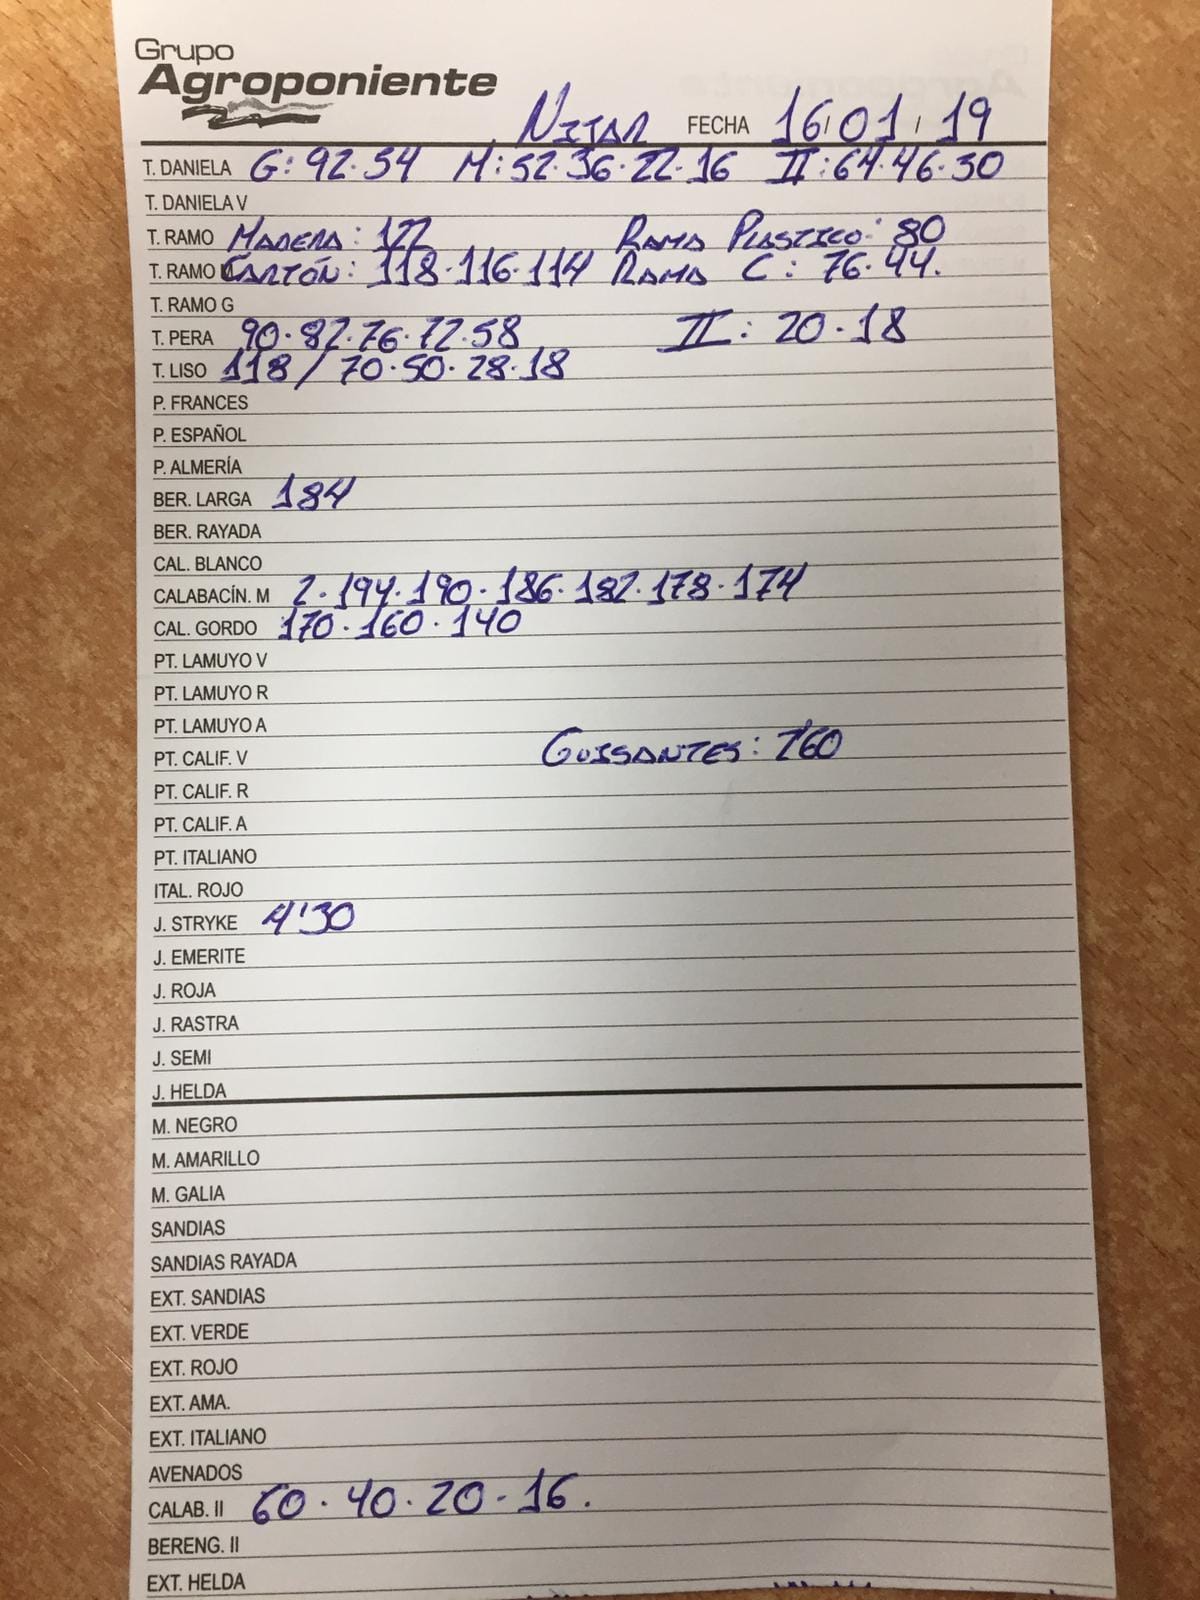 Grupo
Agroponiente
NIJAR FECHA 16/01/19
T. DANIELA G: 92·54 M: 52·36·22·16 II: 64·46·30
T. DANIELA V
T. RAMO MADERA: 122 RAMA PLASTICO: 80
T. RAMO CARTÓN: 118·116·114 RAMA C: 76·44.
T. RAMO G
T. PERA 90·82·76·72·58 II: 20·18
T. LISO 118 / 70·50·28·18
P. FRANCES
P. ESPAÑOL
P. ALMERÍA
BER. LARGA 184
BER. RAYADA
CAL. BLANCO
CALABACÍN. M 2·194·190·186·182·178·174
CAL. GORDO 170·160·140
PT. LAMUYO V
PT. LAMUYO R
PT. LAMUYO A
PT. CALIF. V GUISANTES: 2'60
PT. CALIF. R
PT. CALIF. A
PT. ITALIANO
ITAL. ROJO
J. STRYKE 4'30
J. EMERITE
J. ROJA
J. RASTRA
J. SEMI
J. HELDA
M. NEGRO
M. AMARILLO
M. GALIA
SANDIAS
SANDIAS RAYADA
EXT. SANDIAS
EXT. VERDE
EXT. ROJO
EXT. AMA.
EXT. ITALIANO
AVENADOS
CALAB. II 60·40·20·16.
BERENG. II
EXT. HELDA